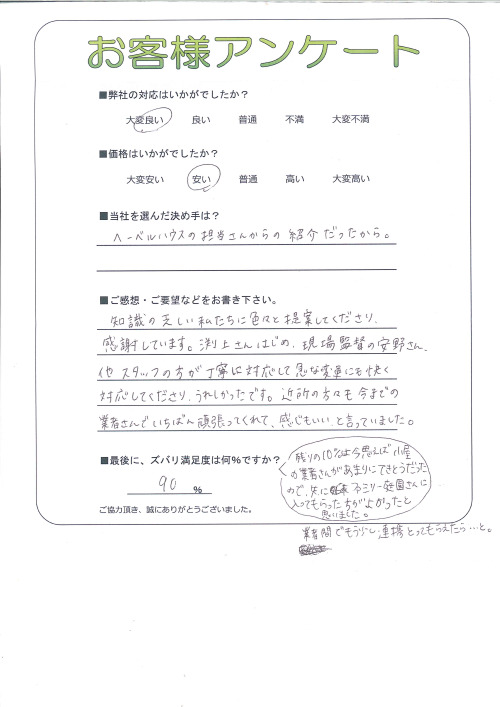 お客様アンケート
■弊社の対応はいかがでしたか？
大変良い 良い 普通 不満 大変不満
■価格はいかがでしたか？
大変安い 安い 普通 高い 大変高い
■当社を選んだ決め手は？
ヘーベルハウスの担当さんからの紹介だったから。
■ご感想・ご要望などをお書き下さい。
知識の乏しい私たちに色々と提案してくださり、
感謝しています。渕上さんはじめ、現場監督の安野さん、
他スタッフの方が丁寧に対応して急な変更にも快く
対応してくださり、うれしかったです。近所の方々も今までの
業者さんでいちばん頑張ってくれて、感じもいい、と言っていました。
■最後に、ズバリ満足度は何％ですか？
90 %
残りの10%は今思えば小屋
の業者さんがあまりにてきとうだった
ので、先に ファミリー庭園さんに
入ってもらった方がよかったと
思いました。
業者間でもう少し連携とってもらえたら…と。
ご協力頂き、誠にありがとうございました。